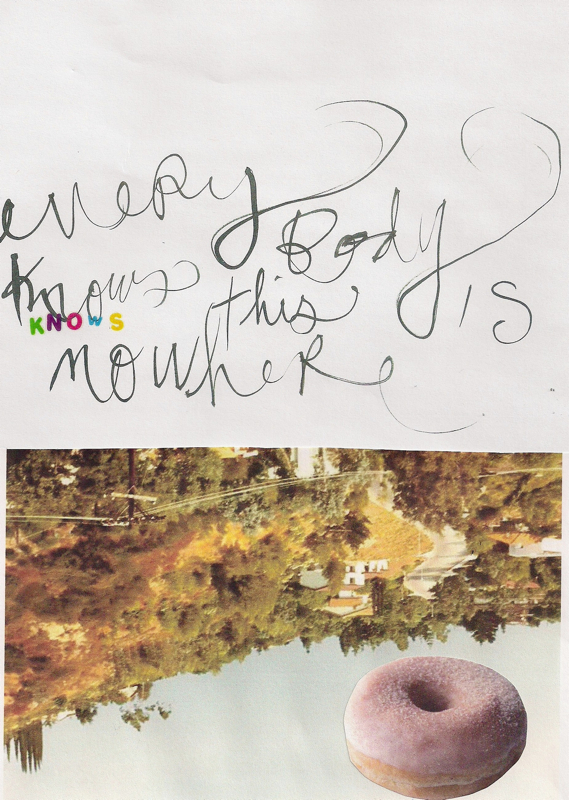 eveRy Body
knows this is
KNOWS
nowheRe